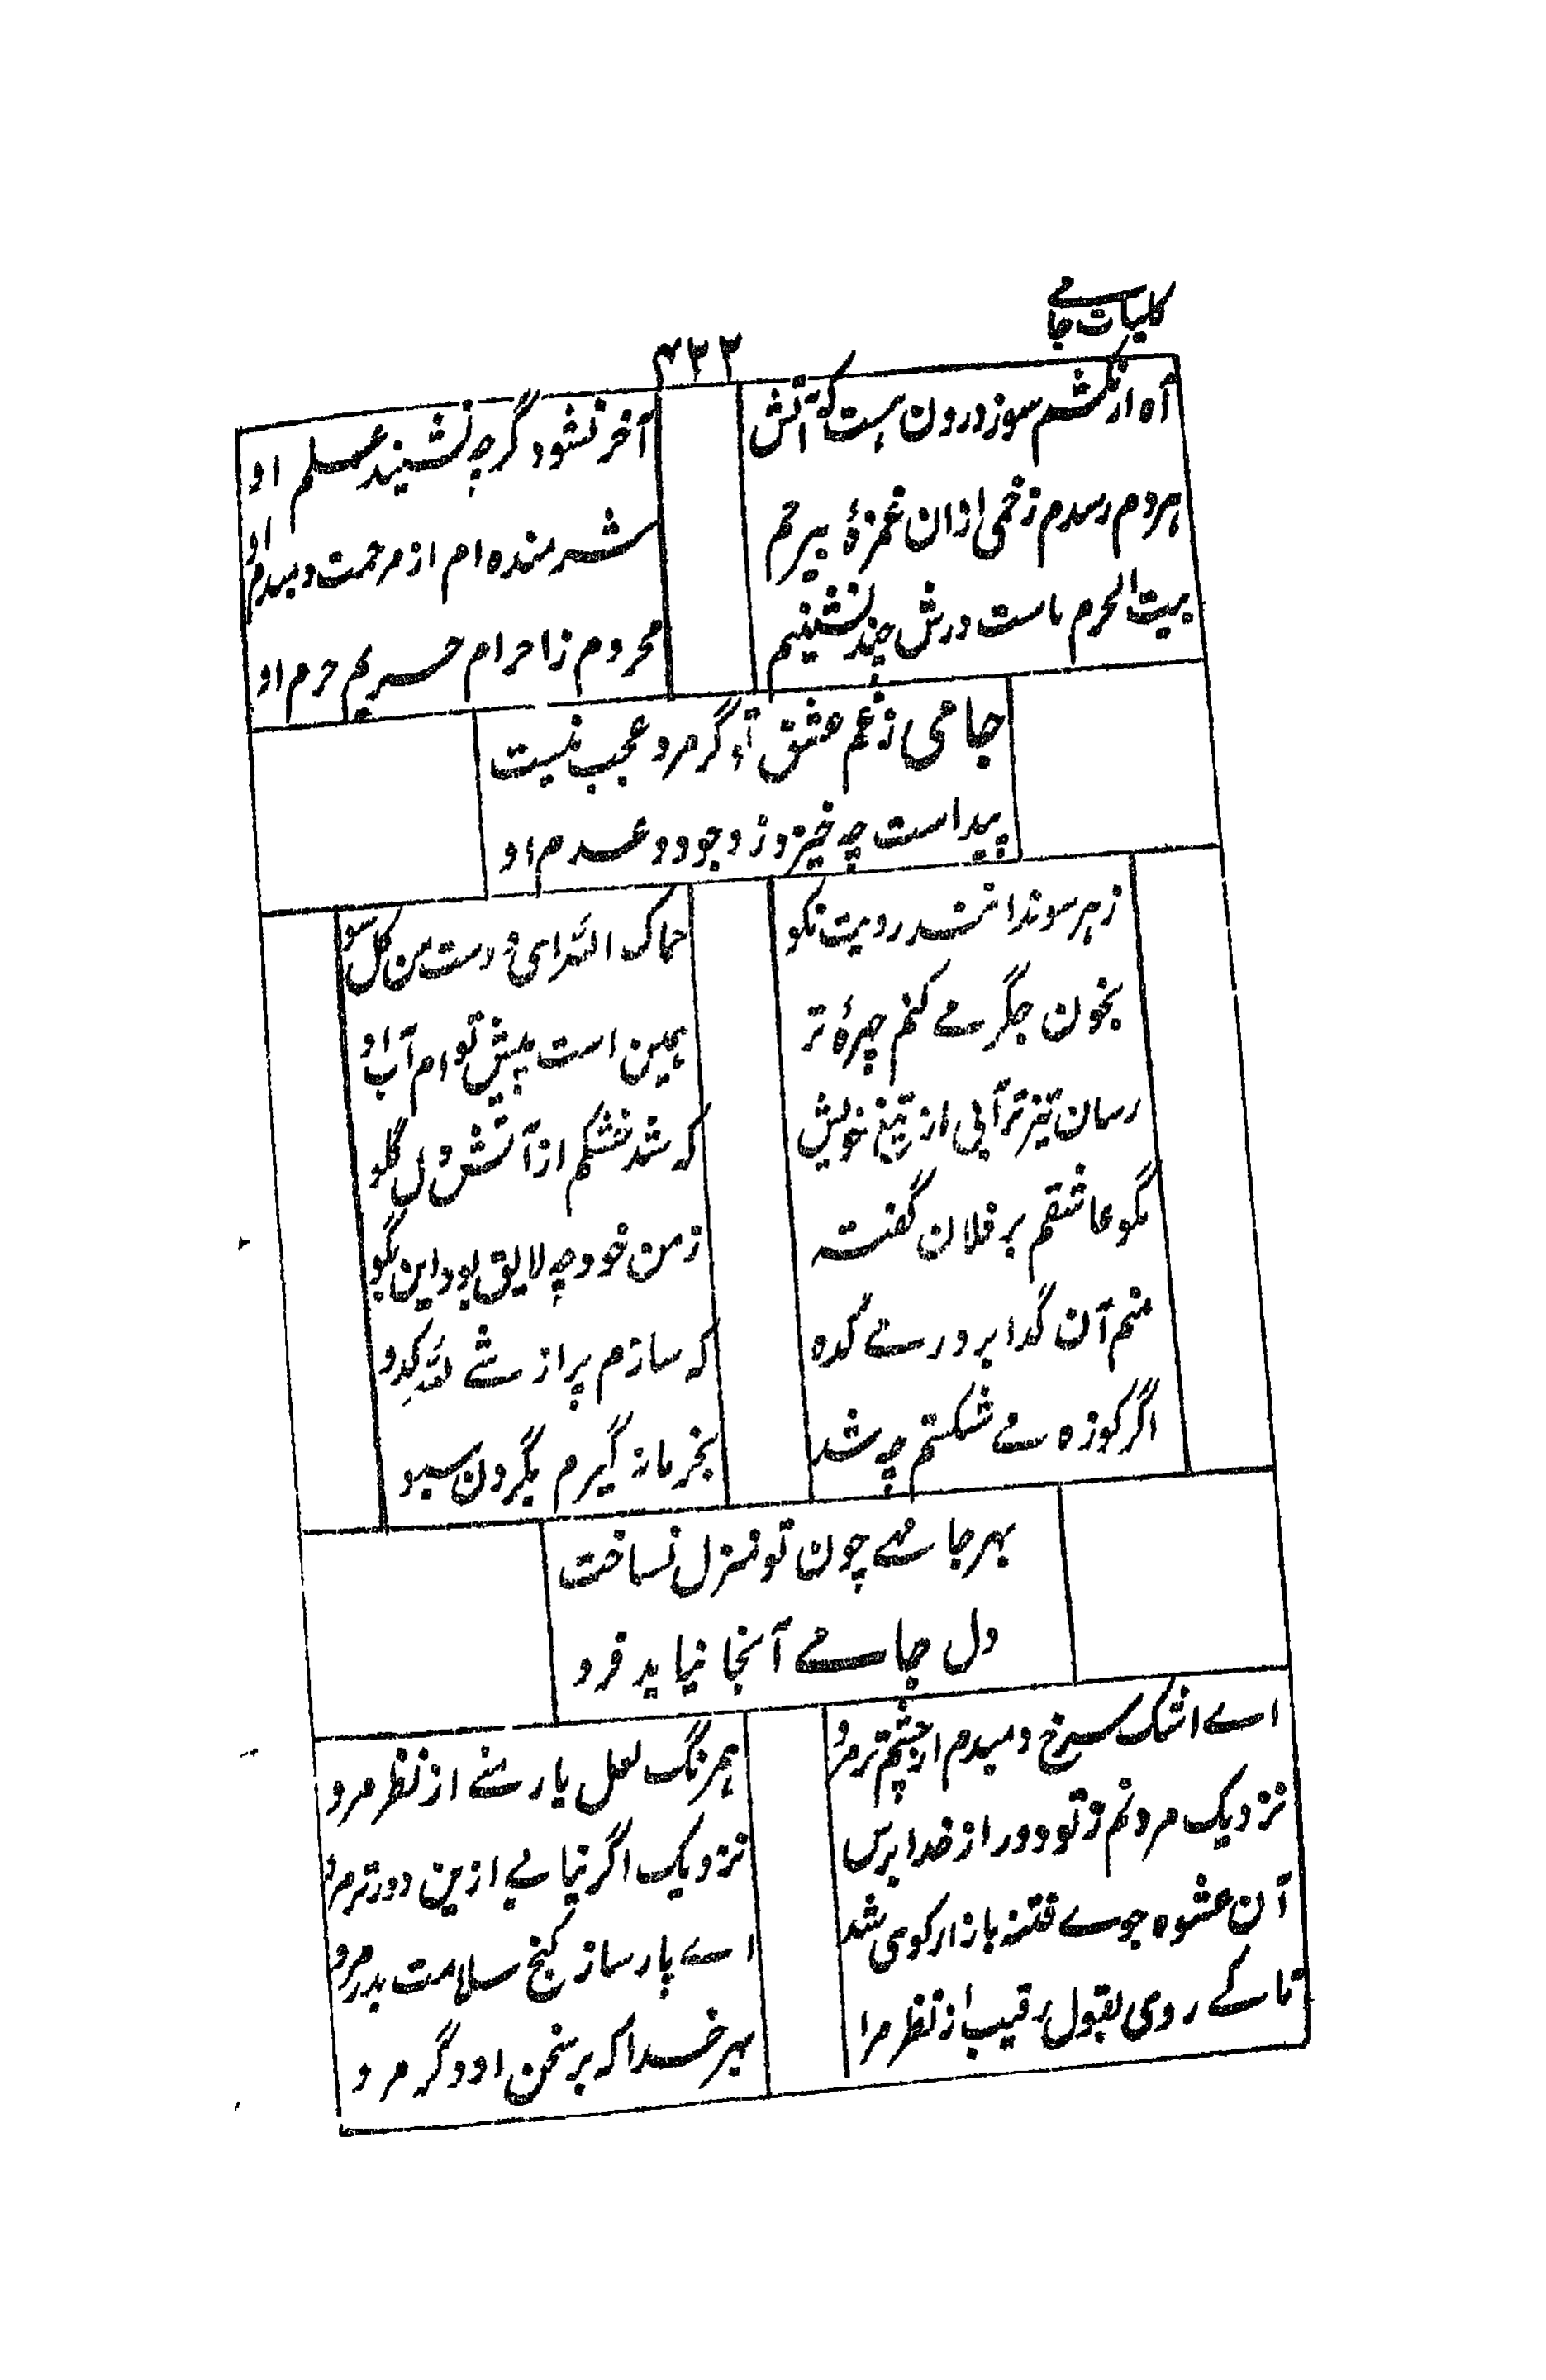 کلیات جامے
۴۲۲
آه ار نکشم سوز درون هست که آتش
آخر نشود گرچه نشیند علم او
هردم رسدم زخمی ازان غمزهٔ بیرحم
شرمنده ام از مرحمت دمبدم او
بیت الحرم ماست درش چند نشینیم
محروم ز احرام حریم حرم او
جامی ز غم عشق تو گر مرد عجب نیست
پیداست چه خیزد ز وجود و عدم او
ز هر سو ندانند رویت نکو
حماک الله ای دوست من کل سو
بخون جگر مے کنم چهرهٔ تر
همین است پیش تو ام آب رو
رسان تیز تر آبی از تیغ خویش
که شد خشکم از آتش دل گلو
مگو عاشقم بر فلان گفتهٔ
ز من خود چه لایق بود این بگو
منم آن گدا بر در مے کده
که سازم پر از شے لله کدو
اگر کوزه مے شکستم چه شد
بجرمانه گیرم بگردن سبو
بهر جا مہے چون تو منزل نساخت
دل جامے آنجا نیاید فرو
اے اشک سرخ دمبدم از چشم تر مرو
همرنگ لعل یار منے از نظر مرو
نزدیک مردنم ز تو دور از خدا بترس
نزدیک اگر نیایے ازین دور تر مرو
آن عشوه جوے فتنه بازار کوی شد
اے پارسا ز کنج سلامت بدر مرو
تا کے روی بقول رقیب از نظر مرا
بهر خدا که بر سخن او دگر مرو